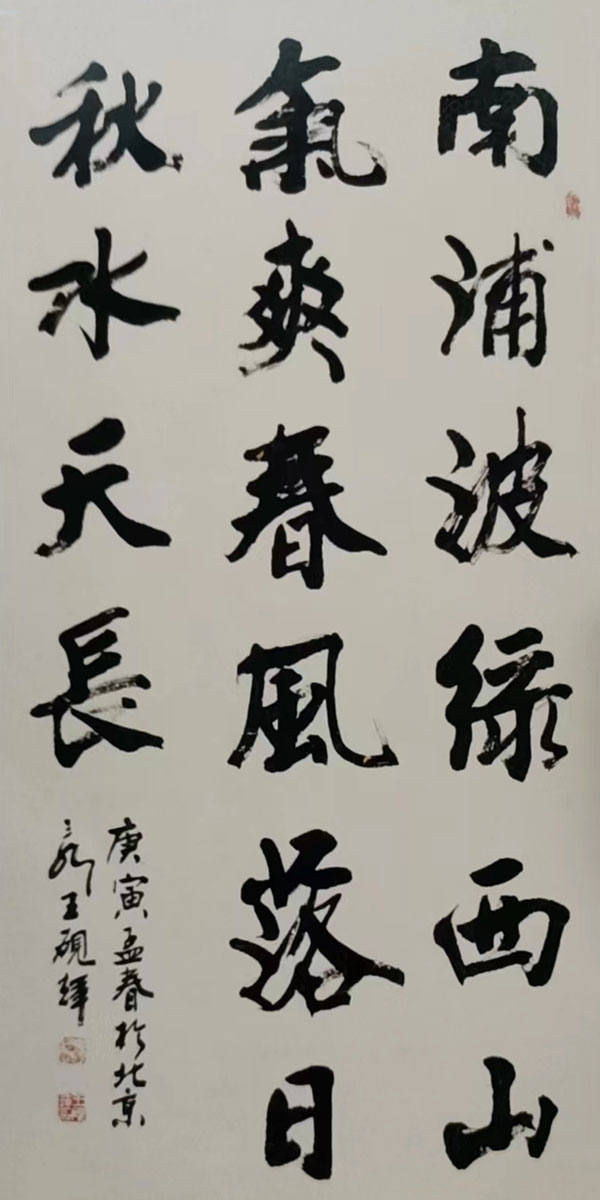 南浦波綠西山
氣爽春風落日
秋水天長
庚寅孟春於北京
王硯輝